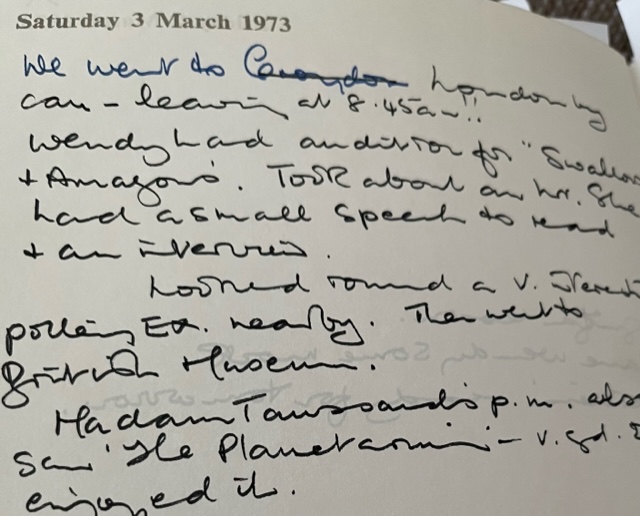 Saturday 3 March 1973
We went to Croydon London by
car - leaving at 8.45am!!
Wendy had audition for "Swallows
+ Amazons". Took about an hr. She
had a small speech to read
+ an interview.
Looked round a v. interesting
pottery Ex. nearby. Then went to
British Museum.
Madam Taussaud's p.m. also
saw 'The Planetarium' - v. gd. &
enjoyed it.